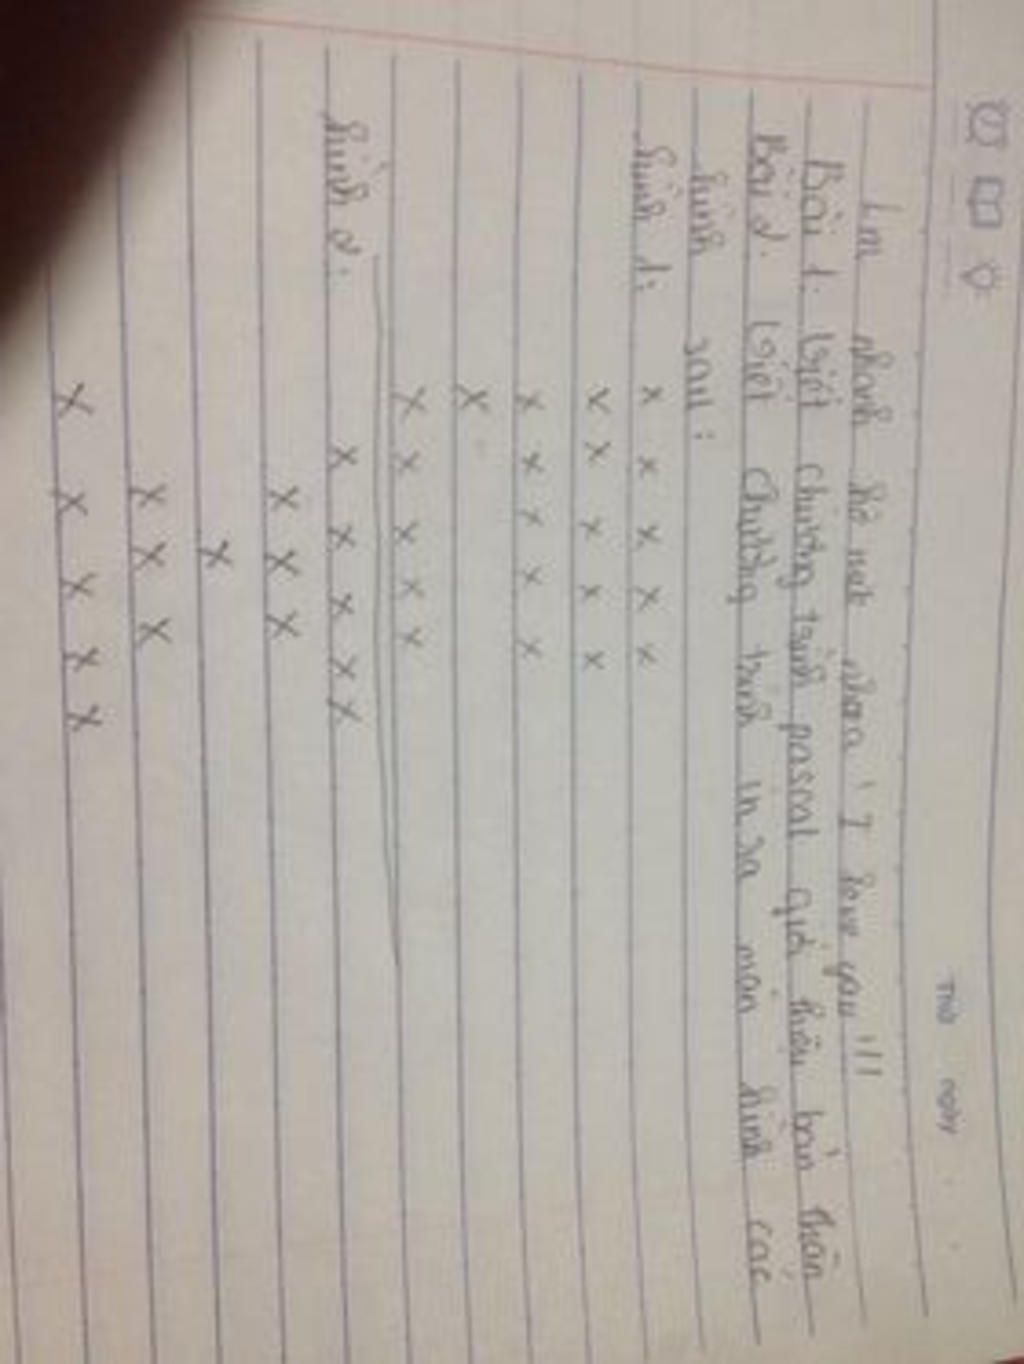 Thứ ngày
Lm nhanh hộ mik nhaa ! I love you !!!
Bài 1. Viết chương trình pascal giới thiệu bản thân
Bài 2. Viết chương trình in ra màn hình các
hình sau :
hình 1: x x x x x
x x x x x
x x x x x
x
x x x x x
hình 2: x x x x x
x x x
x
x x x
x x x x x